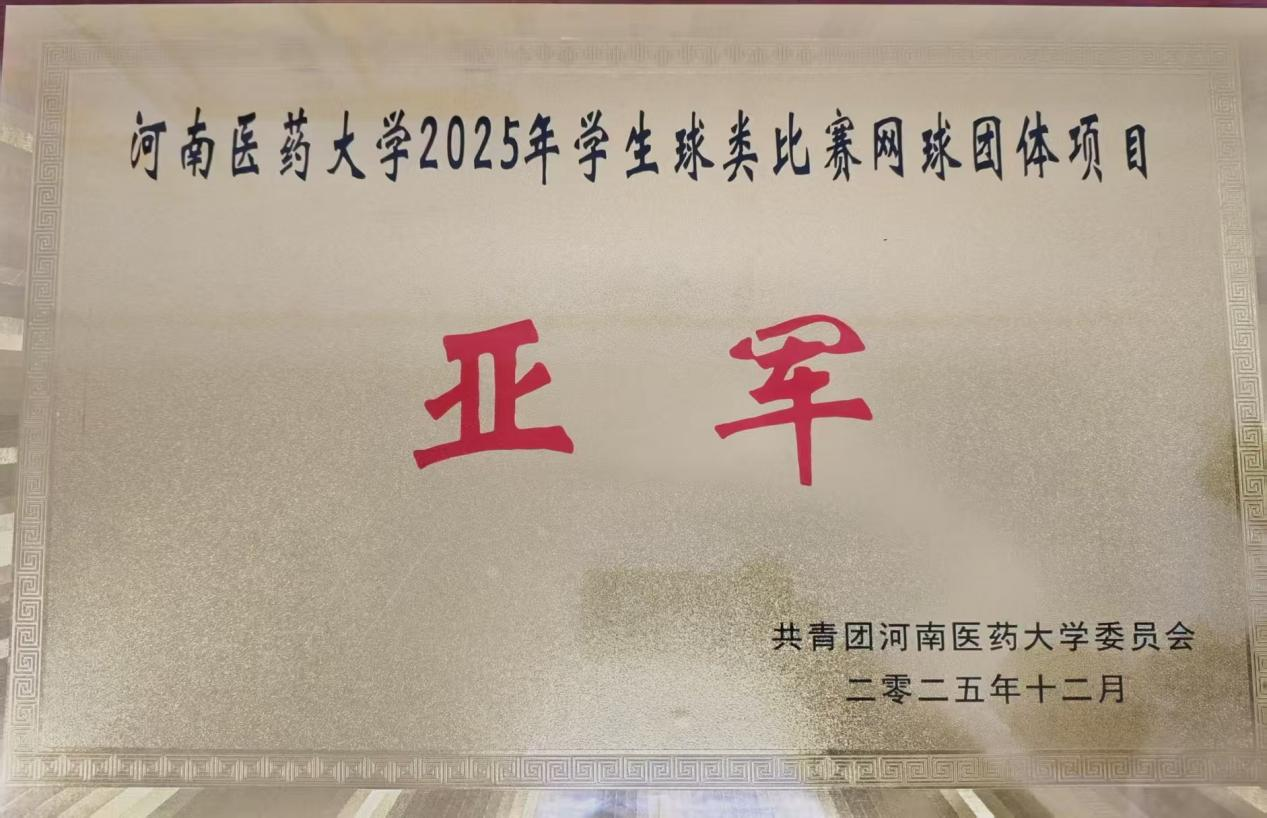 河南医药大学2025年学生球类比赛网球团体项目
亚军
共青团河南医药大学委员会
二零二五年十二月